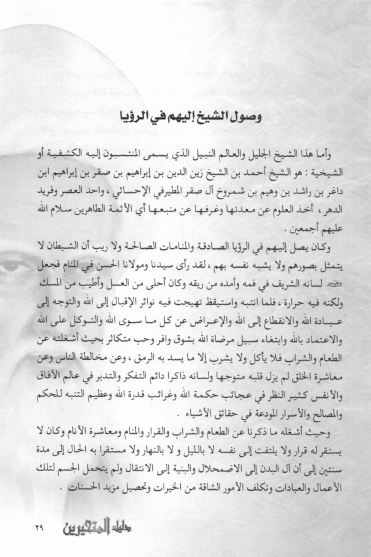 وصول الشيخ إليهم في الرؤيا
وأما هذا الشيخ الجليل والعالم النبيل الذي يسمى المنتسبون إليه الكشفية أو
الشيخية : هو الشيخ أحمد بن الشيخ زين الدين بن إبراهيم بن صقر بن إبراهيم ابن
داغر بن راشد بن وهيم بن شمروخ آل صقر المطيرفي الإحسائي ، واحد العصر وفريد
الدهر ، أخذ العلوم عن معدنها وغرفها عن منبعها أي الأئمة الطاهرين سلام الله
عليهم أجمعين .
وكان يصل إليهم في الرؤيا الصادقة والمنامات الصالحة ولا ريب أن الشيطان لا
يتمثل بصورهم ولا يشبه نفسه بهم ، لقد رأى سيدنا ومولانا الحسن في المنام فجعل
لسانه الشريف في فمه وأمده من ريقه وكان أحلى من العسل وأطيب من المسك
ولكنه فيه حرارة ، فلما انتبه واستيقظ تهيجت فيه نوائر الإقبال إلى الله والتوجه إلى
عبادة الله والانقطاع إلى الله والإعراض عن كل ما سوى الله والتوكل على الله
والاعتماد بالله وابتغاء سبيل مرضاة الله بشوق وافر وحب متكاثر بحيث أشغلته عن
الطعام والشراب فلا يأكل ولا يشرب إلا ما يسد به الرمق ، وعن مخالطة الناس وعن
معاشرة الخلق لم يزل قلبه متوجها ولسانه ذاكرا دائم التفكر والتدبر في عالم الآفاق
والأنفس كثير النظر في عجائب حكمة الله وغرائب قدرة الله وعظيم التنبه للحكم
والمصالح والأسرار المودعة في حقائق الأشياء .
وحيث أشغله ما ذكرنا عن الطعام والشراب والقرار والمنام ومعاشرة الأنام وكان لا
يستقر له قرار ولا يلتفت إلى نفسه لا بالليل و لا بالنهار ولا مستقرا به الحال إلى مدة
سنتين إلى أن آل البدن إلى الاضمحلال والبنية إلى الانتقال ولم يتحمل الجسم لتلك
الأعمال والعبادات وتكلف الأمور الشاقة من الخيرات وتحصيل مزيد الحسنات .
دليل المتحيرين ٢٩